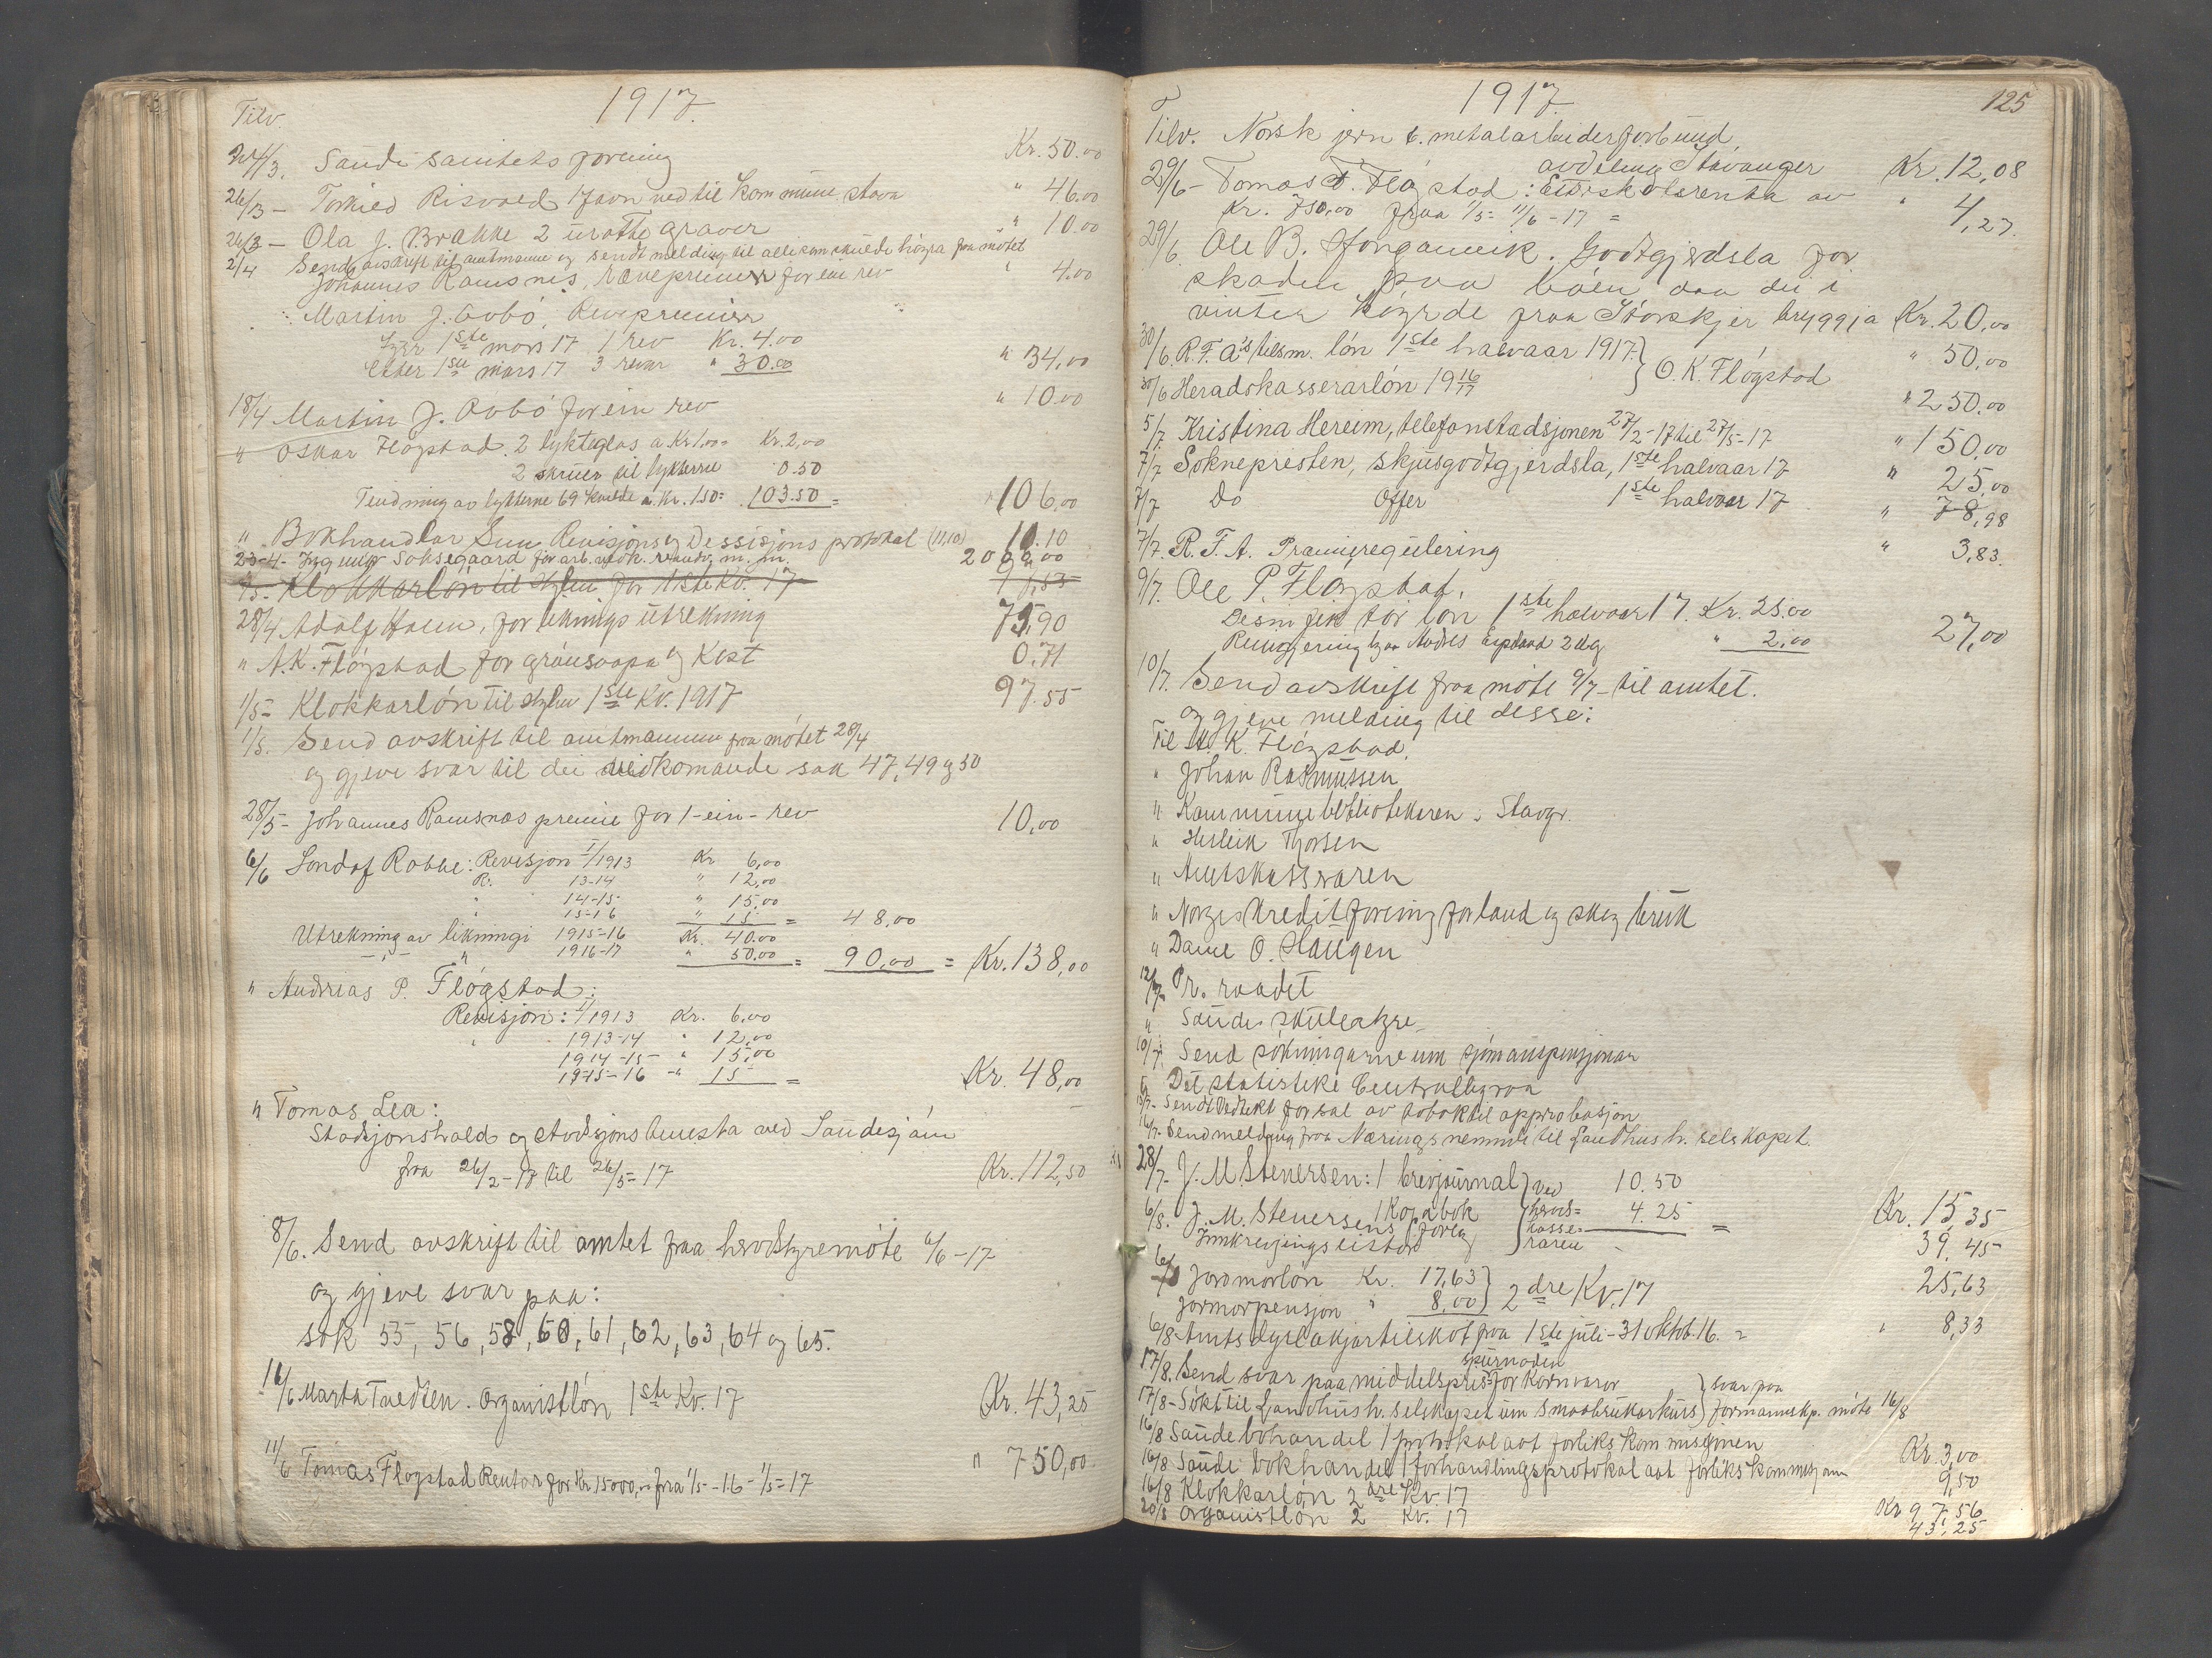 1917.
Tilv.
24/3. Saude sanitets forening Kr. 50.00
26/3 – Torkied Risvoed 1 favn ved til kommune stova " 46.00
26/3 – Ola J. Brakke 2 graver " 10.00
2/4 Send avskrift til amtmannen og sendt melding til alle kom skulde høyra fra møtet
Johannes Ramsnes, rævepremie for ein rev " 4.00
Martin J. Aabø, Revepremier
Fyr 1ste mars 17 1 rev Kr. 4.00
Etter 1ste mars 17 3 revar " 30.00 " 34.00
18/4 Martin J. Aabø for ein rev " 10.00
" Oskar Fløgstad 2 lykteglas a Kr 1.00= Kr. 2,00
2 skruer til lykterne 0.50
Tendning av lykterne 69 kvelde a. Kr. 1.50= 103.50 = " 106,00
" Bokhandlar Sun Revisjons og Dessisjons protokol (11,10) 10.10
23-4- Ingemar Søksegaard for arb. m. m. 20
1/5- Klokkarløn til for 1ste Kv. 17
28/4 Adolf , for liknings utrekning 75,90
" A. K. Fløgstad for grønsoapa og Kost 0.71
1/5- Klokkarløn til 1ste Kv. 1917 97.55
1/5. Send avskrift til amtmannen fraa møtet 28/4
og gjeve svar til dei vedkomande sak 47, 49 og 50
28/5- Johannes Ramsnes premie for 1-ein-rev 10,00
6/6 Sondof Robbe: Revisjon I/1913 Kr 6,00
R. 13-14 " 12,00
" 14-15 " 15,00
" 15-16 " 15 = 48,00
Utrekning av likningi 1915-16 Kr. 40.00
–"– " 1916-17 " 50.00 = 90,00 = Kr. 138,00
" Andreas P. Fløgstad:
Revisjon: I/1913 Kr. 6,00
" 1913-14 " 12,00
1914-15- " 15,00
1915-16 -" 15 = Kr. 48,00
" Tomas Lea:
Stadsjonshald og stadsjons tenesta ved Saudesjøen
fra 26/2-17 til 26/5-17 Kr. 112,50
8/6. Send avskrift til amtet fraa heradstyremøte 6/6-17
og gjeve svar paa:
sak 55, 56, 58, 60, 61, 62, 63, 64 og 65.
16/6 Marta Tvedten. Organistløn 1ste Kv. 17 Kr. 43,25
11/6 Tomas Fløgstad Rentor for Kr 15000,00 fra 1/5-16-1/5-17 " 750,00
1917. 125
Tilv. Norsk jern & metalarbeiderforbund,
avdeling Stavanger Kr. 12,08
29/6- Tomas T. Fløgstad: Etterskotsrenta av
Kr. 750,00 fraa 1/5- 11/6-17 = " 4,27.
29/6. Ole B. . Godtgjerdsla for
skaden paa bóen daa dei i
vinter køyrde fraa Storskjer bryggja Kr. 20,00
30/6. R. F. A's tilsm. løn 1ste halvaar 1917. } O. K. Fløgstad " 50,00
30/6 Heradskasserarløn 19 16/17 " 250,00
5/7 Kristina Hereim, telefonstadsjonen 27/2-17 til 27/5-17 " 150,00
7/7 Soknepresten, skjusgodtgjerdsla, 1ste halvaar 17 " 25,00
7/7 Do Offer 1ste halvaar 17 " 78,98
7/7. R. F. A. Pramieregulering " 3,83.
9/7. Ole P. Fløgstad.
Desinfektør løn 1ste halvaar 17. Kr. 25.00
Reingjering hjaa Andres 2 dg. " 2.00 27,00
10/7. Send avskrift fraa møte 9/7- til amtet.
og gjeve melding til disse:
Til A. K. Fløgstad
" Johan Rasmussen
" Kommunebibliotekaren i Stavgr.
" Herleik Thorsen
" Amtskasseraren
" Norges kreditforening for land og skog bruk
" Daniel O. Haugen
12/7- Pr. raadet
" Saude skulestyre
10/7 Send søkningarne um sjømannspensjonar
" Det statistiske Centralbyraa
13/7- Sendt Vedtekt for sal av tobak til approbasjon
16/7- Send melding fraa Næringsnemndi til Landhush. selskapet.
28/7- J. M. Stenersen: 1 brevjournal } ved 10.50
1 Kopabok herads= 4.25 = Kr. 15,35
6/8. J. M. Stenersens forlag kasse=
Innkrevjingslistor raren 39,45
6/8 Jordmorløn Kr. 17,63 } 2dre Kv. 17 25,63
Jormorpensjon " 8,00
6/8- Amtsdyrlækjartilskot fraa 1ste juli-31 oktob. 16. = " 8,33
17/8. Send svar paa middelspris spurnaden for Kornvaror } svar paa
17/8- Søkt til Landhush. selskapet um smaabrukarkurs } formannskp. møte 16/8
16/8 Saude bokhandel 1 protokol aat forlikskommisjonen Kr. 3,00
16/8 Saude bokhandel 1 forhandlingsprotokol aat forlikskommisjonen 9,50
16/8 Klokkarløn 2dre Kv. 17 Kr 97,56
20/8 Organistløn 2 Kv. 17 43,25